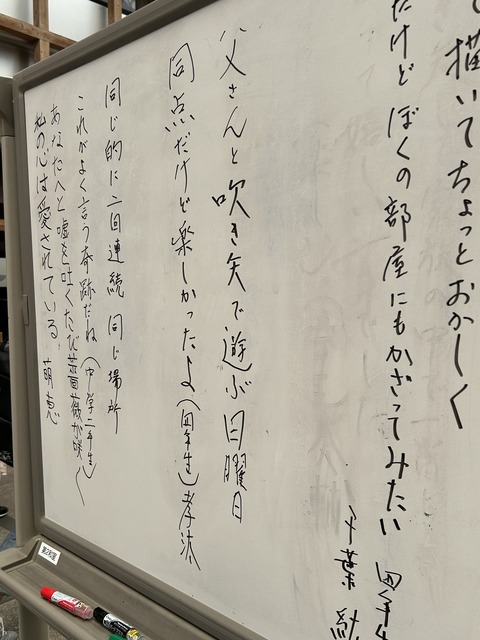 て描いてちょっとおかしく
だけどぼくの部屋にもかざってみたい 四年生
千葉
父さんと吹き矢で遊ぶ日曜日
同点だけど楽しかったよ(四年生) 孝汰
同じ的に二回連続 同じ場所
これがよく言う奇跡だね(中学二年生)
あなたへと嘘を吐くたび薔薇が咲く
私の心は愛されている 萌恵